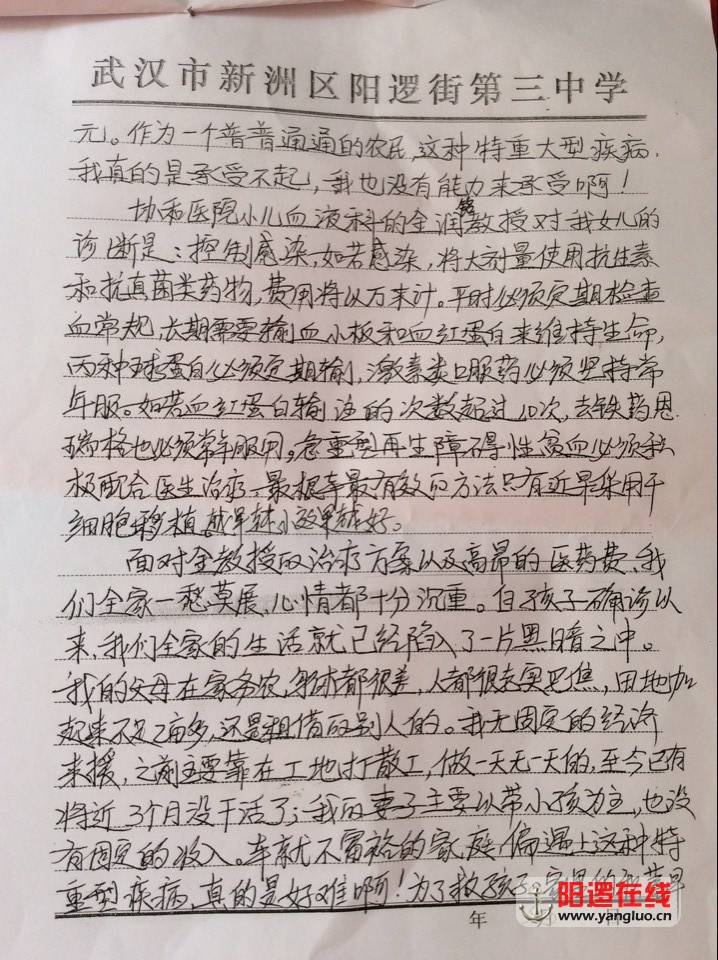 武汉市新洲区阳逻街第三中学
元。作为一个普普通通的农民,这种特重大型疾病,
我真的是承受不起,我也没有能力来承受啊!
协和医院小儿血液科的金润铭教授对我女儿的
诊断是:控制感染,如若感染,将大剂量使用抗生素
和抗真菌类药物,费用将以万来计。平时必须定期检查
血常规,长期需要输血小板和血红蛋白来维持生命,
丙种球蛋白必须定期输,激素类口服药必须坚持常
年服。如若血红蛋白输注的次数超过10次,去铁药恩
瑞格也必须常年服用。急重型再生障碍性贫血必须积
极配合医生治疗,最根本最有效的方法只有近早采用干
细胞移植,越早越小效果越好。
面对金教授的治疗方案以及高昂的医药费,我
们全家一愁莫展,心情都十分沉重。自孩子确诊以
来,我们全家的生活就已经陷入了一片黑暗之中。
我的父母在家务农,身体都很差,人都很老实巴焦,田地加
起来不足2亩多,还是租借的别人的。我无固定的经济
来援,之前主要靠在工地打散工,做一天无一天的,至今已有
将近3个月没干活了;我的妻子主要以带小孩为主,也没
有固定的收入。本就不富裕的家庭,偏遇上这种特
重型疾病,真的是好难啊!为了救孩子,家里的
年
阳逻在线
www.yangluo.cn